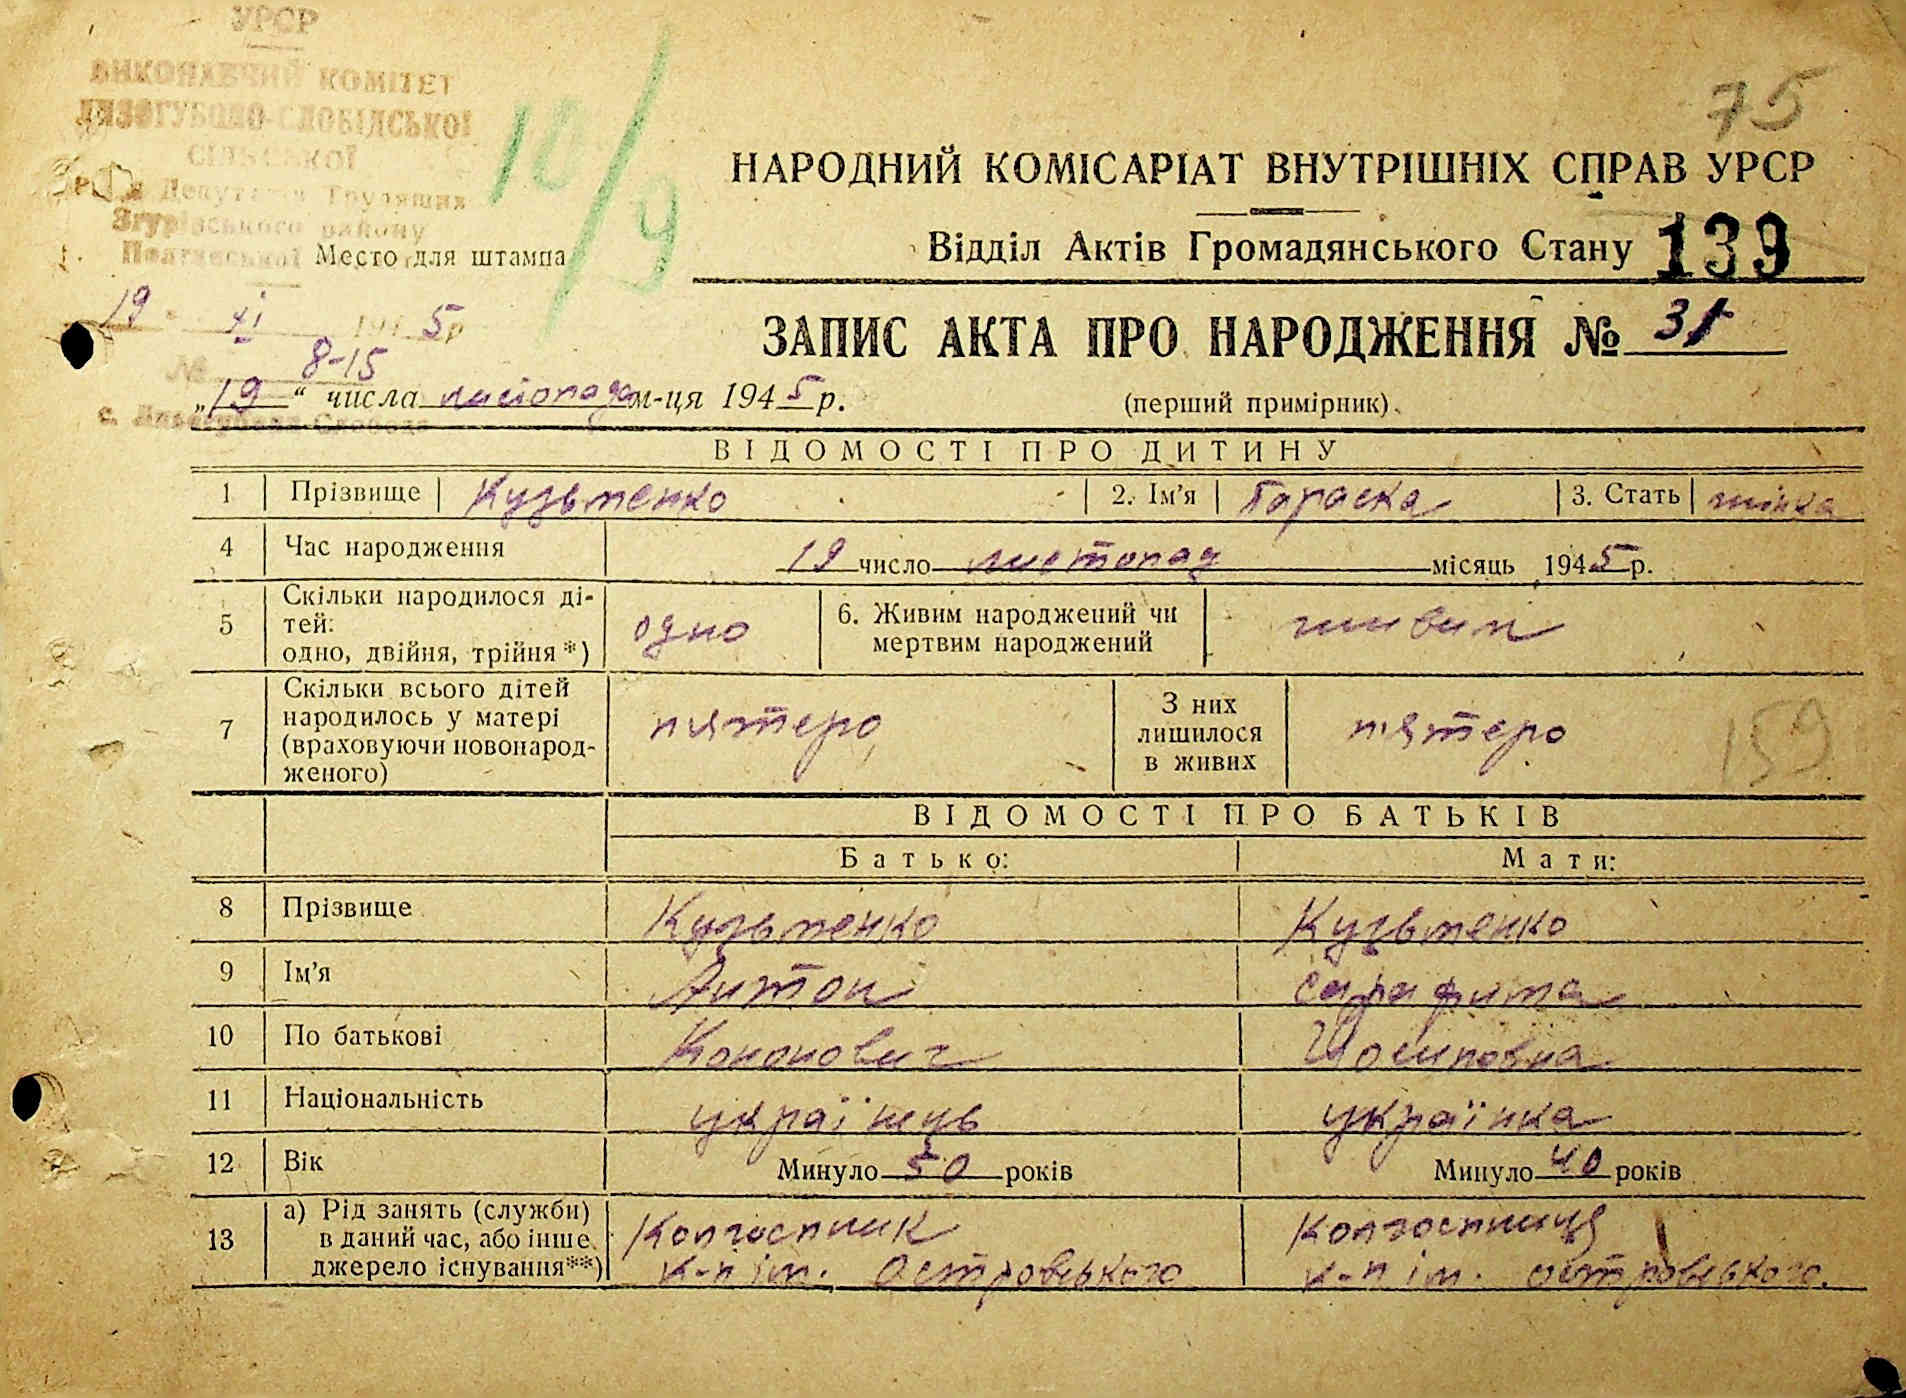 УРСР
ВИКОНАВЧИЙ КОМІТЕТ
ЛИЗОГУБОВО-СЛОБІДСЬКОЇ
СІЛЬСЬКОЇ
Ради Депутатів Трудящих
Згурівського району
Полтавської
Место для штампа
10/4
75
НАРОДНИЙ КОМІСАРІАТ ВНУТРІШНІХ СПРАВ УРСР
Відділ Актів Громадянського Стану 139
ЗАПИС АКТА ПРО НАРОДЖЕННЯ № 31
(перший примірник)
19 XI 1945р
№ 8-15
„19“ числа листопада м-ця 1945 р.
с. Лизогубова-Слобода
ВІДОМОСТІ ПРО ДИТИНУ
1 Прізвище Кузьменко 2. Ім'я Параска 3. Стать жінка
4 Час народження 19 число листопад місяць 1945 р.
5 Скільки народилося ді-
тей:
одно, двійня, трійня*) одно 6. Живим народжений чи
мертвим народжений живим
7 Скільки всього дітей
народилось у матері
(враховуючи новонарод-
женого) пятеро З них
лишилося
в живих пятеро
159
ВІДОМОСТІ ПРО БАТЬКІВ
Батько: Мати:
8 Прізвище Кузьменко Кузьменко
9 Ім'я Антон Сарафима
10 По батькові Кононович Йосиповна
11 Національність українець українка
12 Вік Минуло 50 років Минуло 40 років
13 а) Рід занять (служби)
в даний час, або інше
джерело існування**) Колгоспник
к-п ім. Островського Колгоспниця
к-п ім. Островського.